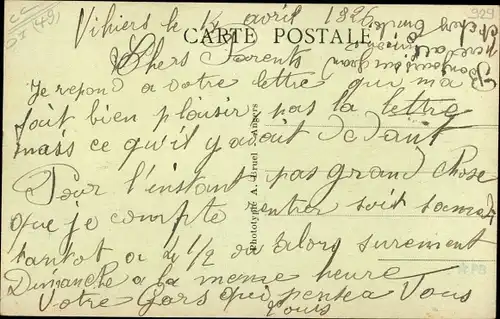 CC
DI (49)
929
Vihiers le 1/2 avril 1926
CARTE POSTALE
Chers Parents
Je repond a votre lettre que m'a
fait bien plaisir pas la lettre
mais ce qu'il y avait dedant
Pour l'instant pas grand chose
que je compte rentrer soit samedi
tantot a 4 1/2 ou alors surement
Dimanche a la meme heure
Votre Gars qui pense a Vous
Phototypie A. Bruel Angers